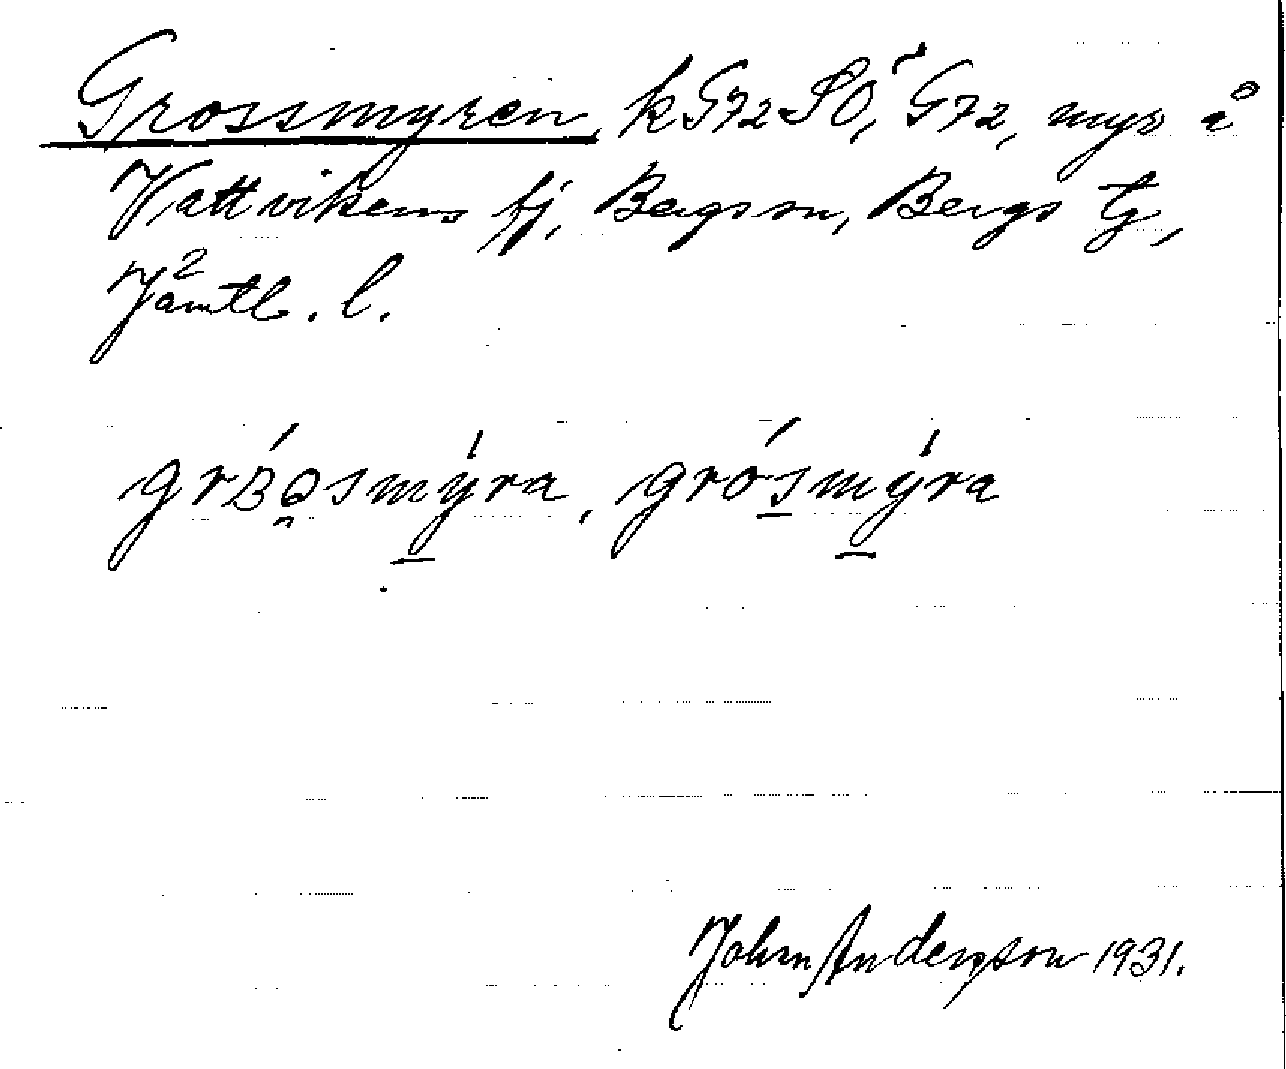 Grossmyren, k G72 SO, G72, myr å
Vattvikens fj, Bergs sn, Bergs tg,
Jämtl. l.
grosmýra, grósmýra
John Anderzson 1931.